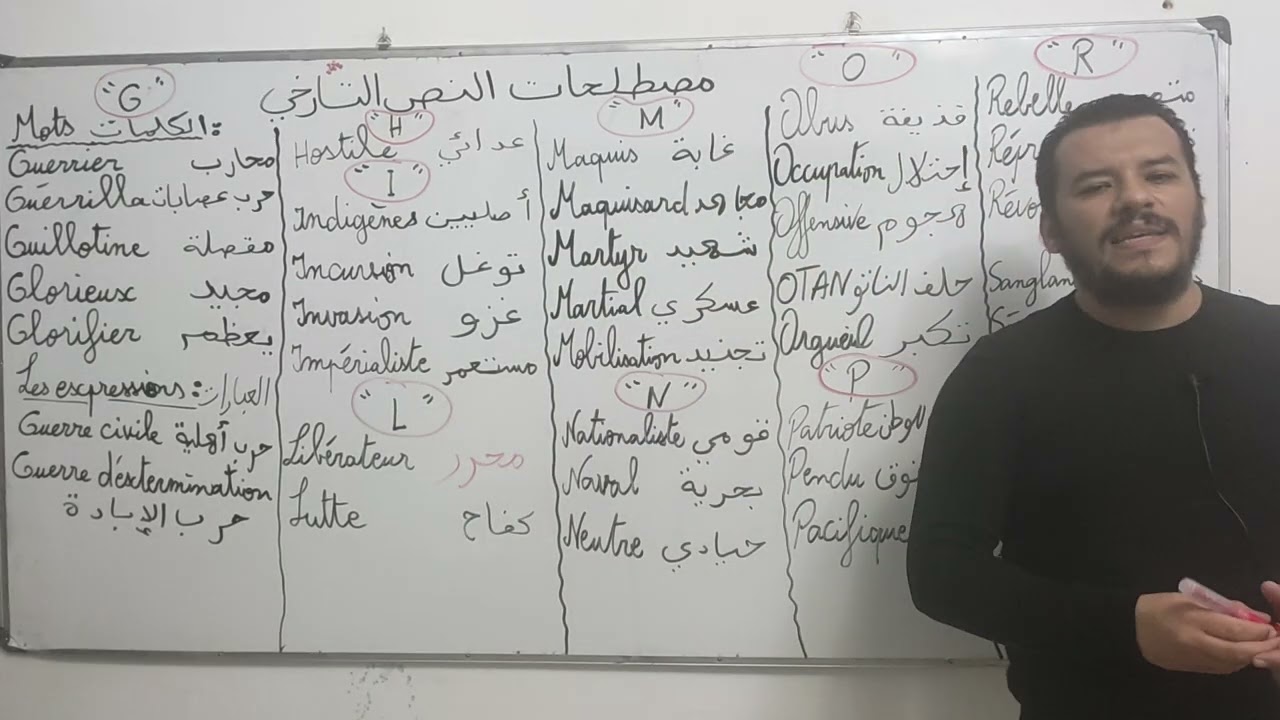 مصطلحات النص التارخي
"G"
Mots الكلمات:
Guerrier محارب
Guérrilla حرب عصابات
Guillotine مقصلة
Glorieux مجيد
Glorifier يعظم
Les expressions: العبارات
Guerre civile حرب أهلية
Guerre d'éxtermination
حرب الإبادة
"H"
Hostile عدائي
"I"
Indigènes أصليين
Incursion توغل
Invasion غزو
Impérialiste مستعمر
"L"
Libérateur محرر
Lutte كفاح
"M"
Maquis غابة
Maquisard مجاهد
Martyr شهيد
Martial عسكري
Mobilisation تجنيد
"N"
Nationaliste قومي
Naval بحرية
Neutre حيادي
"O"
Obus قذيفة
Occupation إحتلال
Offensive هجوم
OTAN حلف الناتو
Orgueil تكبر
"P"
Patriote
Pendu
Pacifique
"R"
Rebelle